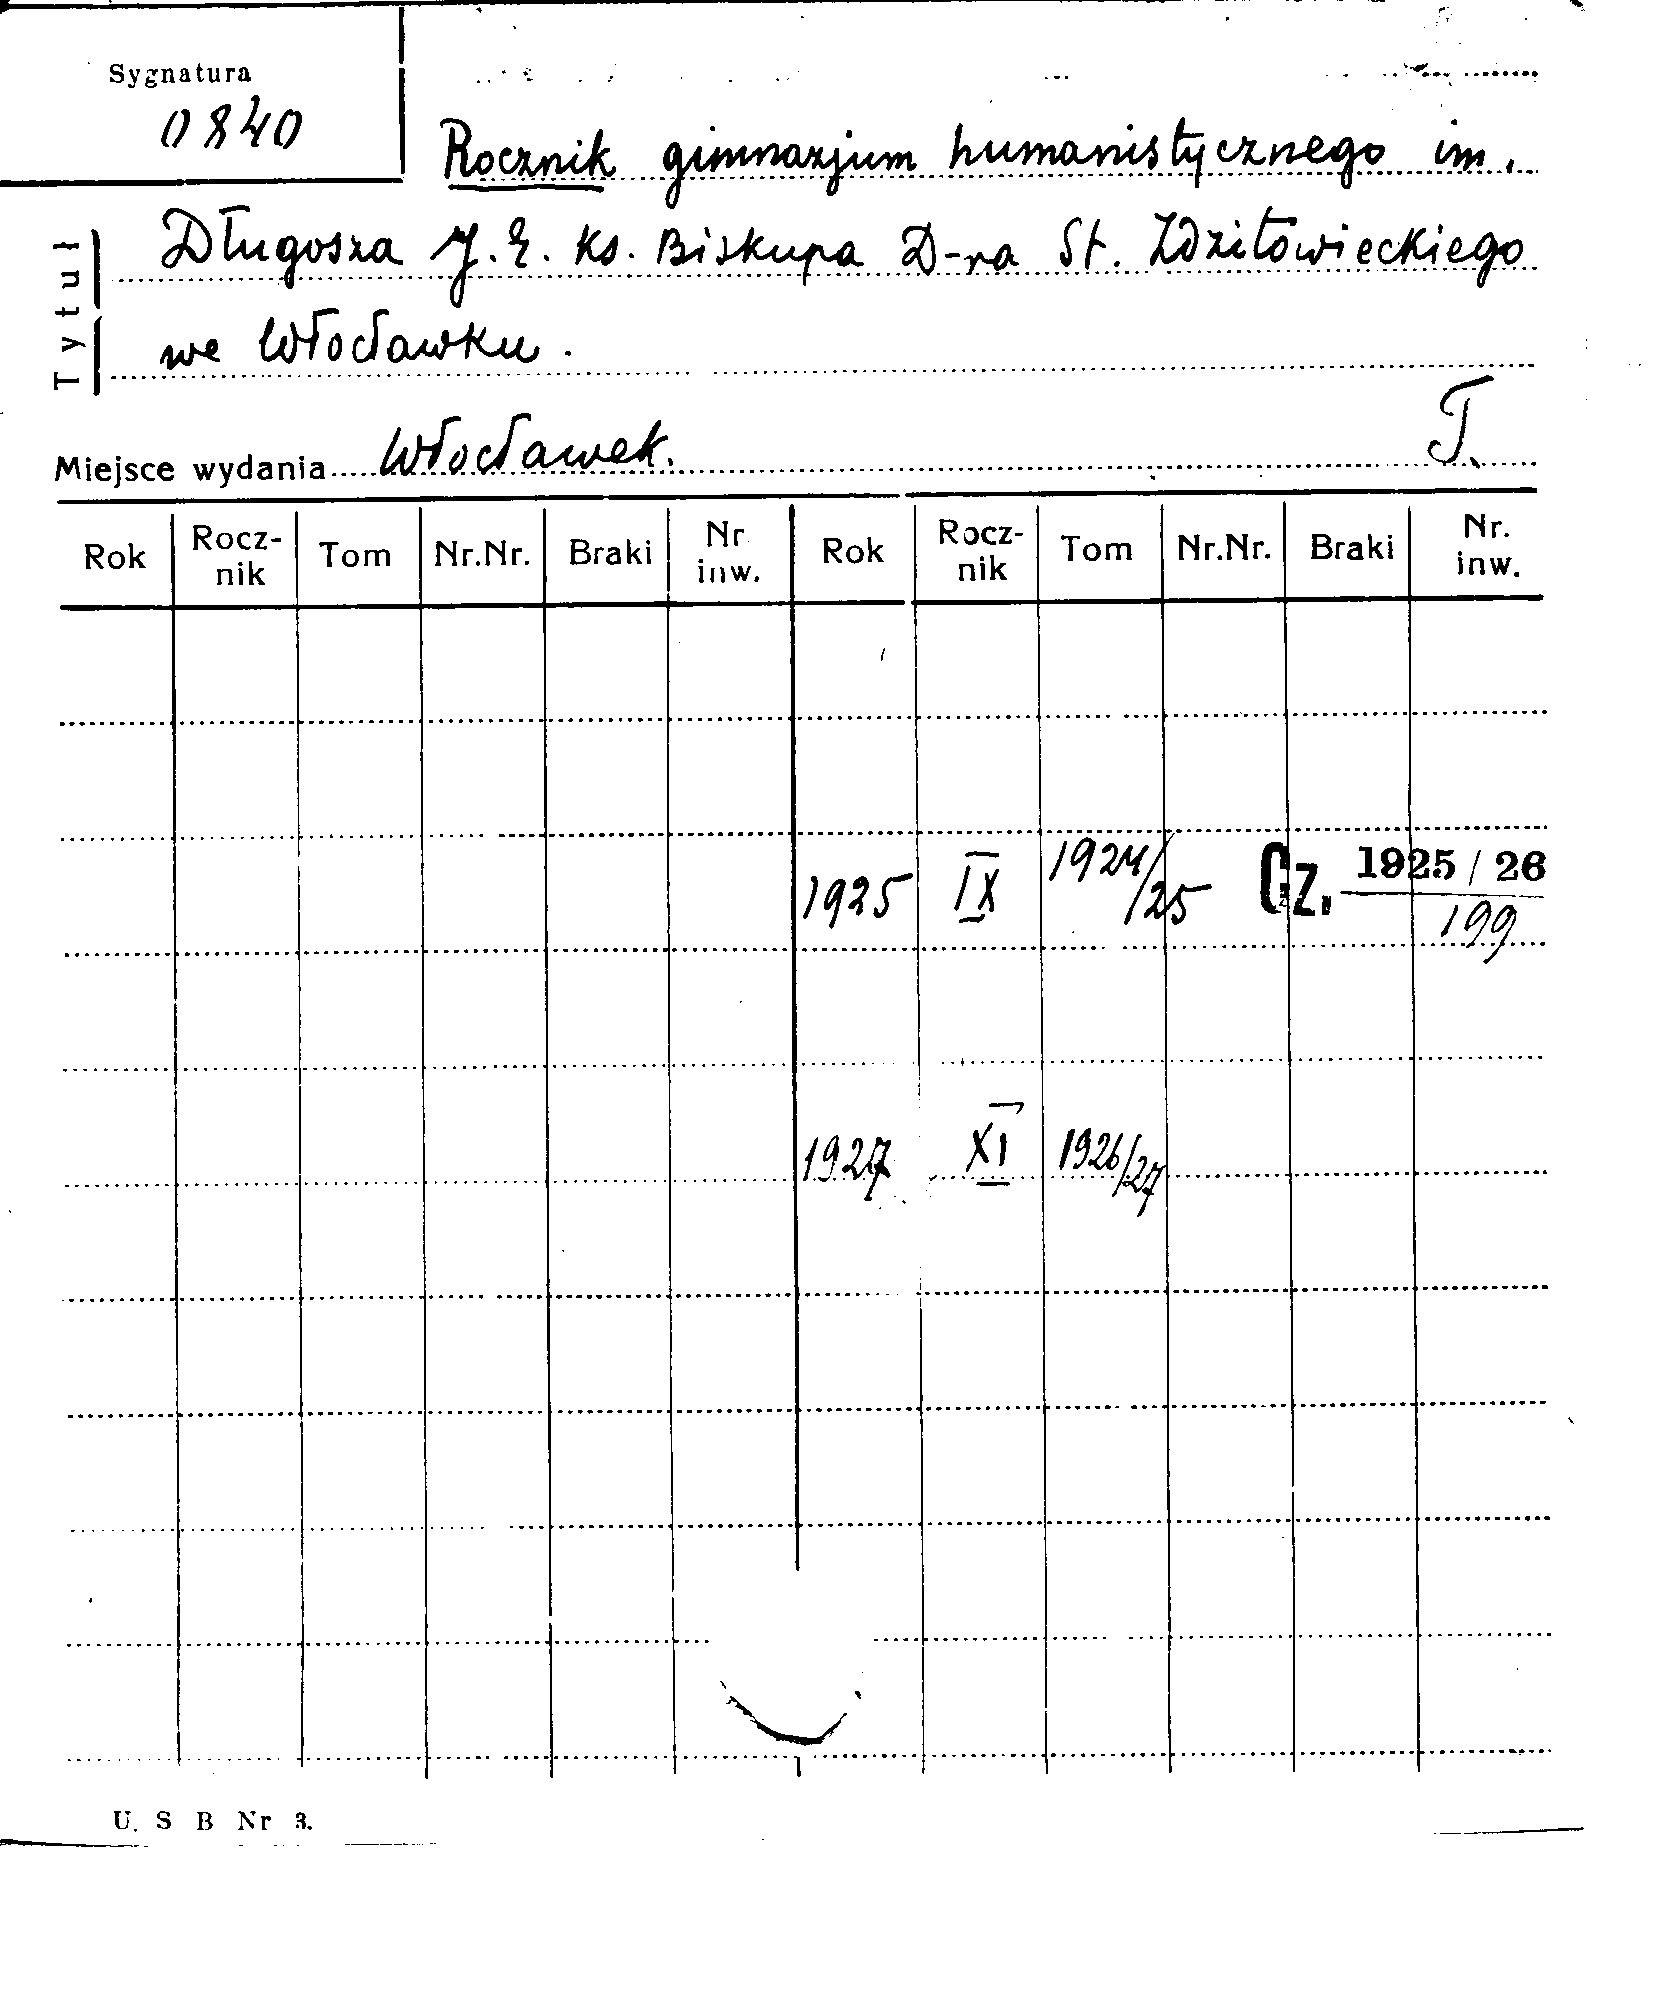 Sygnatura
0840
Rocznik gimnazjum humanistycznego im.
Długosza J. E. Ks. Biskupa D-ra St. Zdziłowieckiego
we Włocławku.
Tytuł
Miejsce wydania Włocławek. T.
Rok Rocz-nik Tom Nr.Nr. Braki Nr inw. Rok Rocz-nik Tom Nr.Nr. Braki Nr. inw.
1925 IX 1924/25 Cz. 1925/26
199
1927 XI 1926/27
U. S B Nr 3.